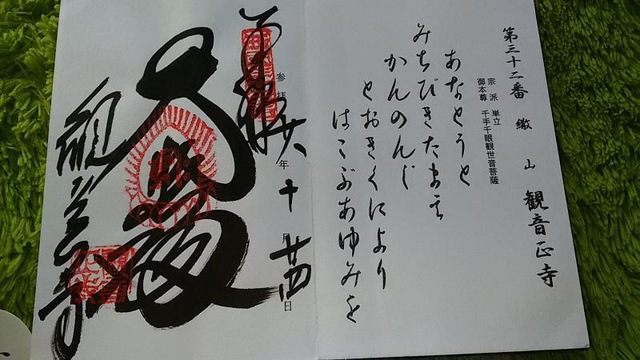 第三十二番 繖山 観音正寺
宗派 単立
御本尊 千手千眼観世音菩薩
あなとうと
みちびきたまえ
かんのんじ
とおきくにより
はこぶあゆみを
参拝 六年十月廿四日
観音正寺